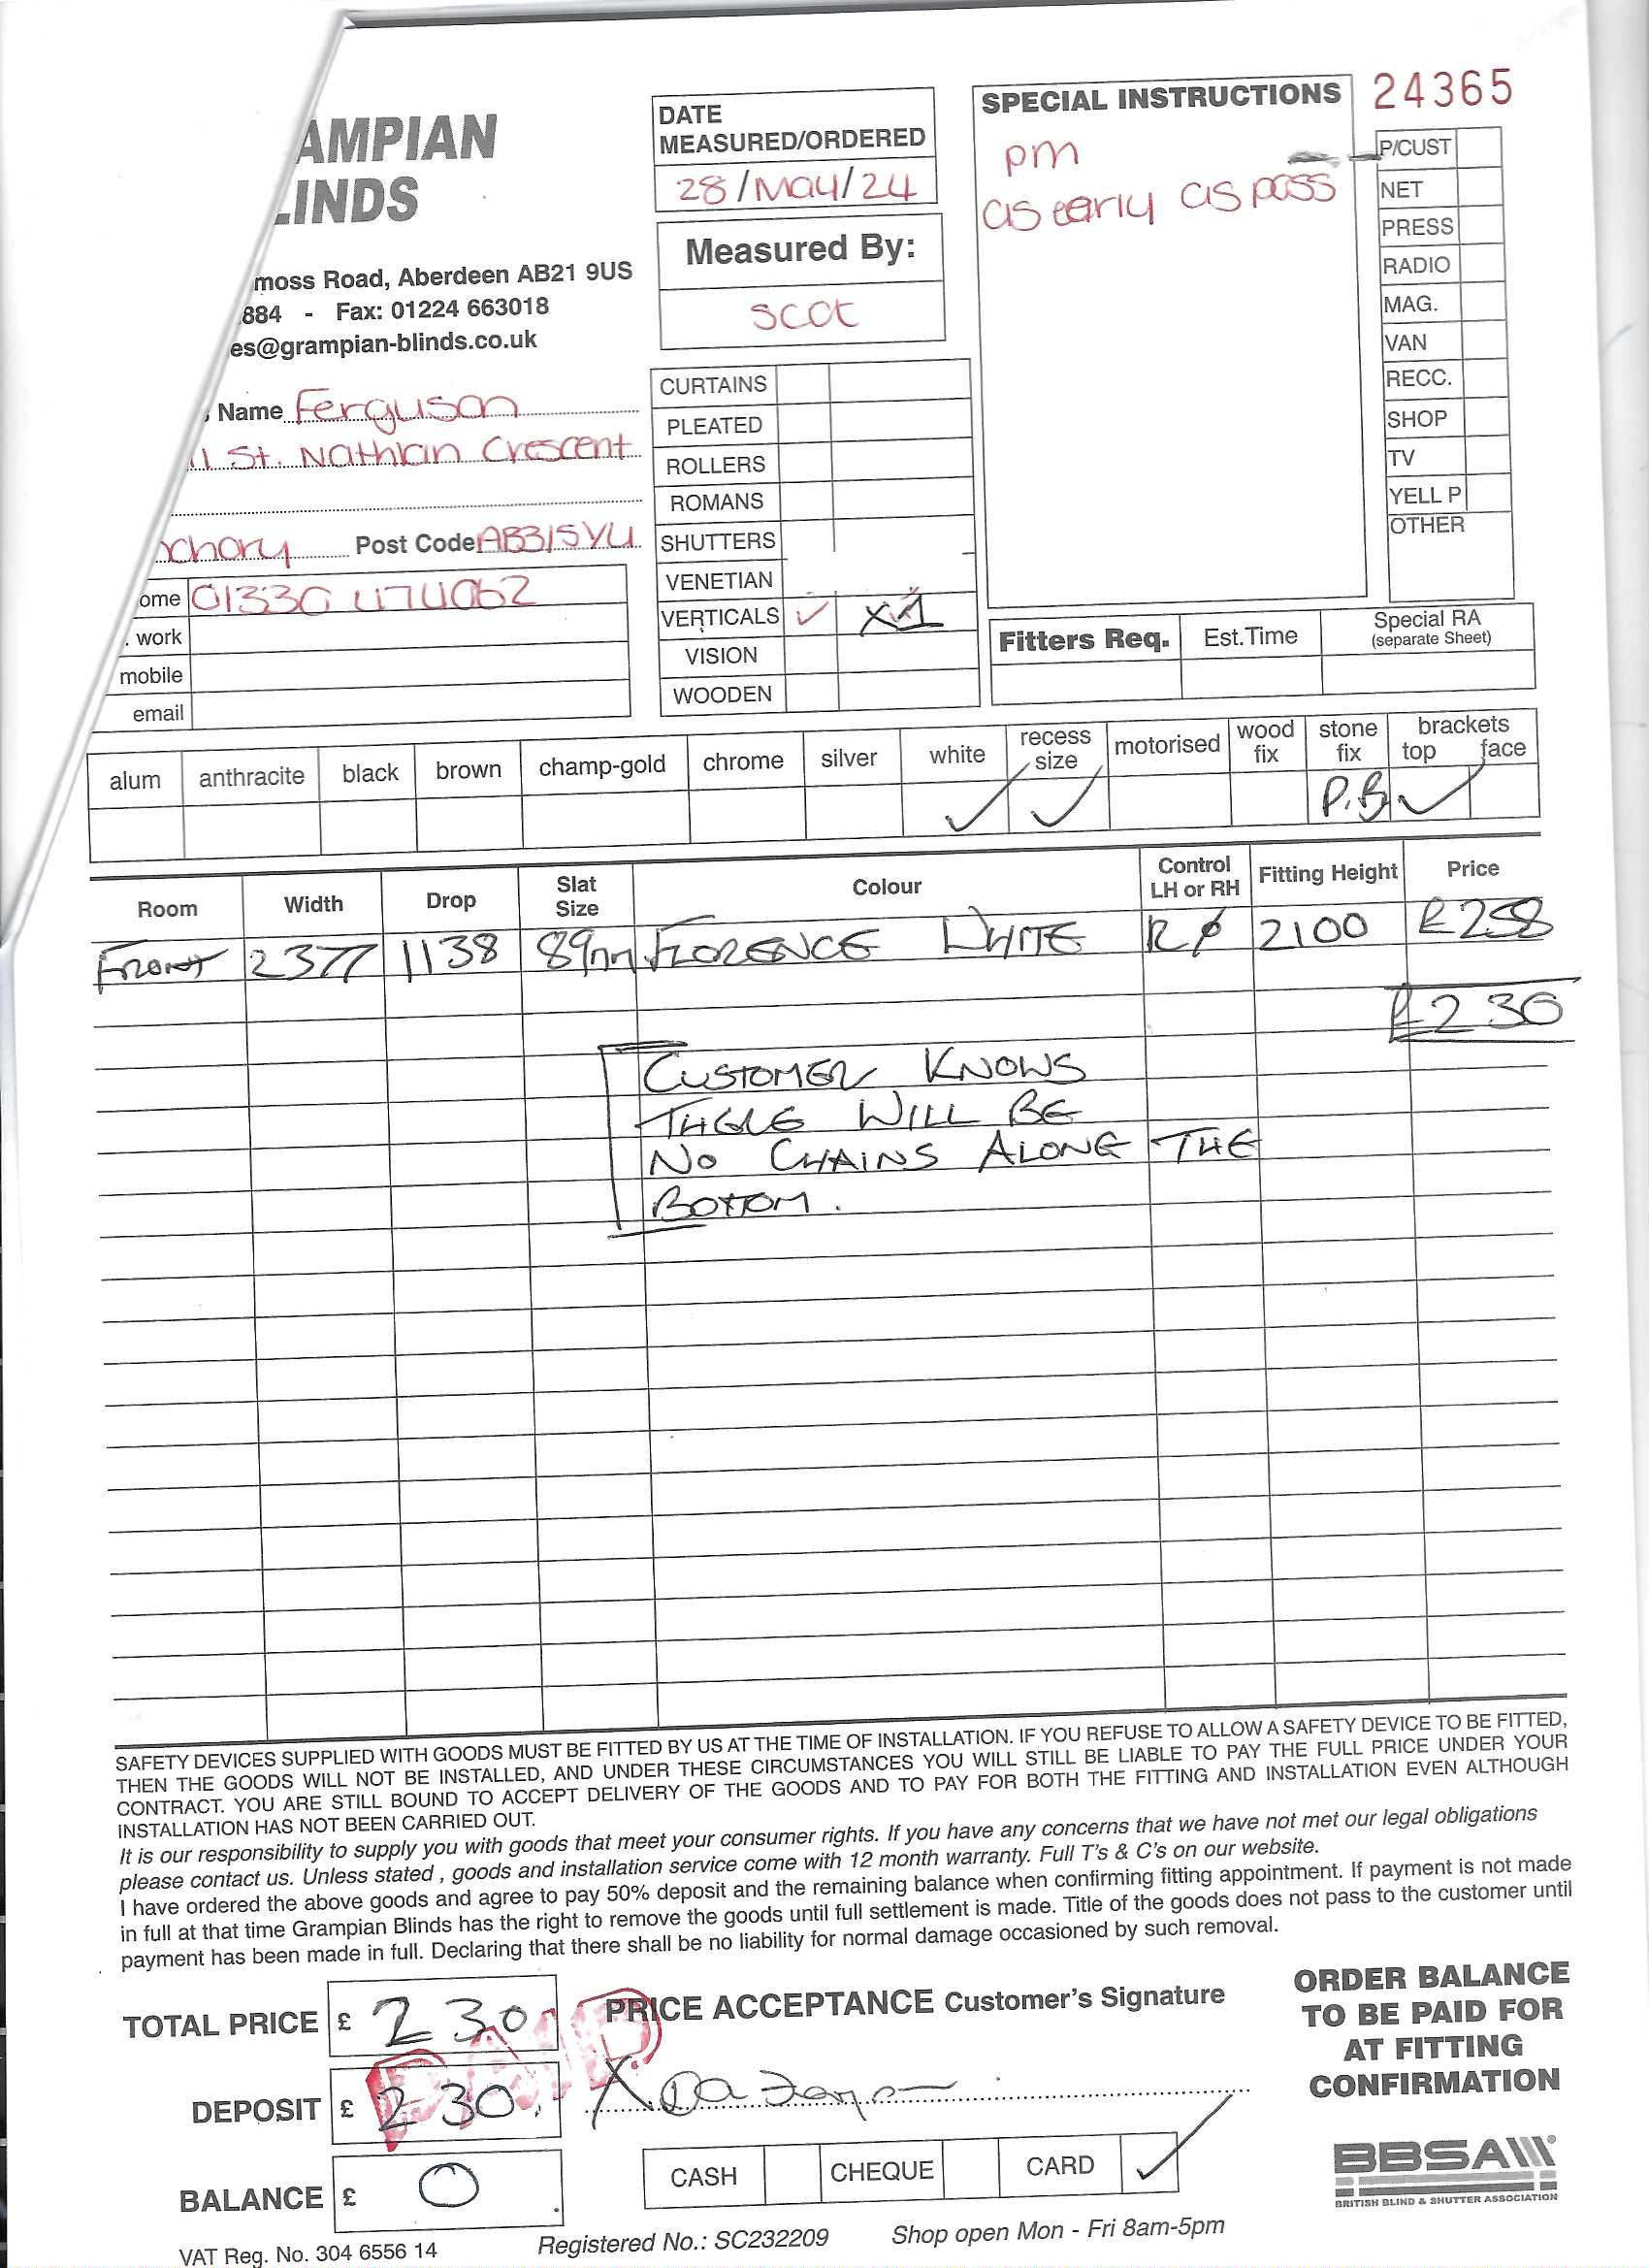 24365
AMPIAN
LINDS
moss Road, Aberdeen AB21 9US
884 - Fax: 01224 663018
es@grampian-blinds.co.uk
DATE
MEASURED/ORDERED
28/May/24
Measured By:
Scot
SPECIAL INSTRUCTIONS
pm
as early as poss
P/CUST
NET
PRESS
RADIO
MAG.
VAN
RECC.
SHOP
TV
YELL P
OTHER
Name Ferguson
11 St. Nathlan Crescent
chory Post Code AB31 5YU
ome 01330
work
mobile
email
CURTAINS
PLEATED
ROLLERS
ROMANS
SHUTTERS
VENETIAN
VERTICALS ✓ x1
VISION
WOODEN
Fitters Req. Est.Time Special RA
(separate Sheet)
alum anthracite black brown champ-gold chrome silver white recess size motorised wood fix stone fix brackets top face
✓ ✓ P.B ✓
Room Width Drop Slat Size Colour Control LH or RH Fitting Height Price
FRONT 2377 1138 89mm FLORENCE WHITE 2100 £258
£230
CUSTOMER KNOWS
THERE WILL BE
NO CHAINS ALONG THE
BOTTOM.
SAFETY DEVICES SUPPLIED WITH GOODS MUST BE FITTED BY US AT THE TIME OF INSTALLATION. IF YOU REFUSE TO ALLOW A SAFETY DEVICE TO BE FITTED,
THEN THE GOODS WILL NOT BE INSTALLED, AND UNDER THESE CIRCUMSTANCES YOU WILL STILL BE LIABLE TO PAY THE FULL PRICE UNDER YOUR
CONTRACT. YOU ARE STILL BOUND TO ACCEPT DELIVERY OF THE GOODS AND TO PAY FOR BOTH THE FITTING AND INSTALLATION EVEN ALTHOUGH
INSTALLATION HAS NOT BEEN CARRIED OUT.
It is our responsibility to supply you with goods that meet your consumer rights. If you have any concerns that we have not met our legal obligations
please contact us. Unless stated , goods and installation service come with 12 month warranty. Full T's & C's on our website.
I have ordered the above goods and agree to pay 50% deposit and the remaining balance when confirming fitting appointment. If payment is not made
in full at that time Grampian Blinds has the right to remove the goods until full settlement is made. Title of the goods does not pass to the customer until
payment has been made in full. Declaring that there shall be no liability for normal damage occasioned by such removal.
TOTAL PRICE £ 230
PAID
DEPOSIT £ 230.
BALANCE £ 0
PRICE ACCEPTANCE Customer's Signature
X
CASH CHEQUE CARD ✓
ORDER BALANCE
TO BE PAID FOR
AT FITTING
CONFIRMATION
BBSA
BRITISH BLIND & SHUTTER ASSOCIATION
VAT Reg. No. 304 6556 14
Registered No.: SC232209
Shop open Mon - Fri 8am-5pm